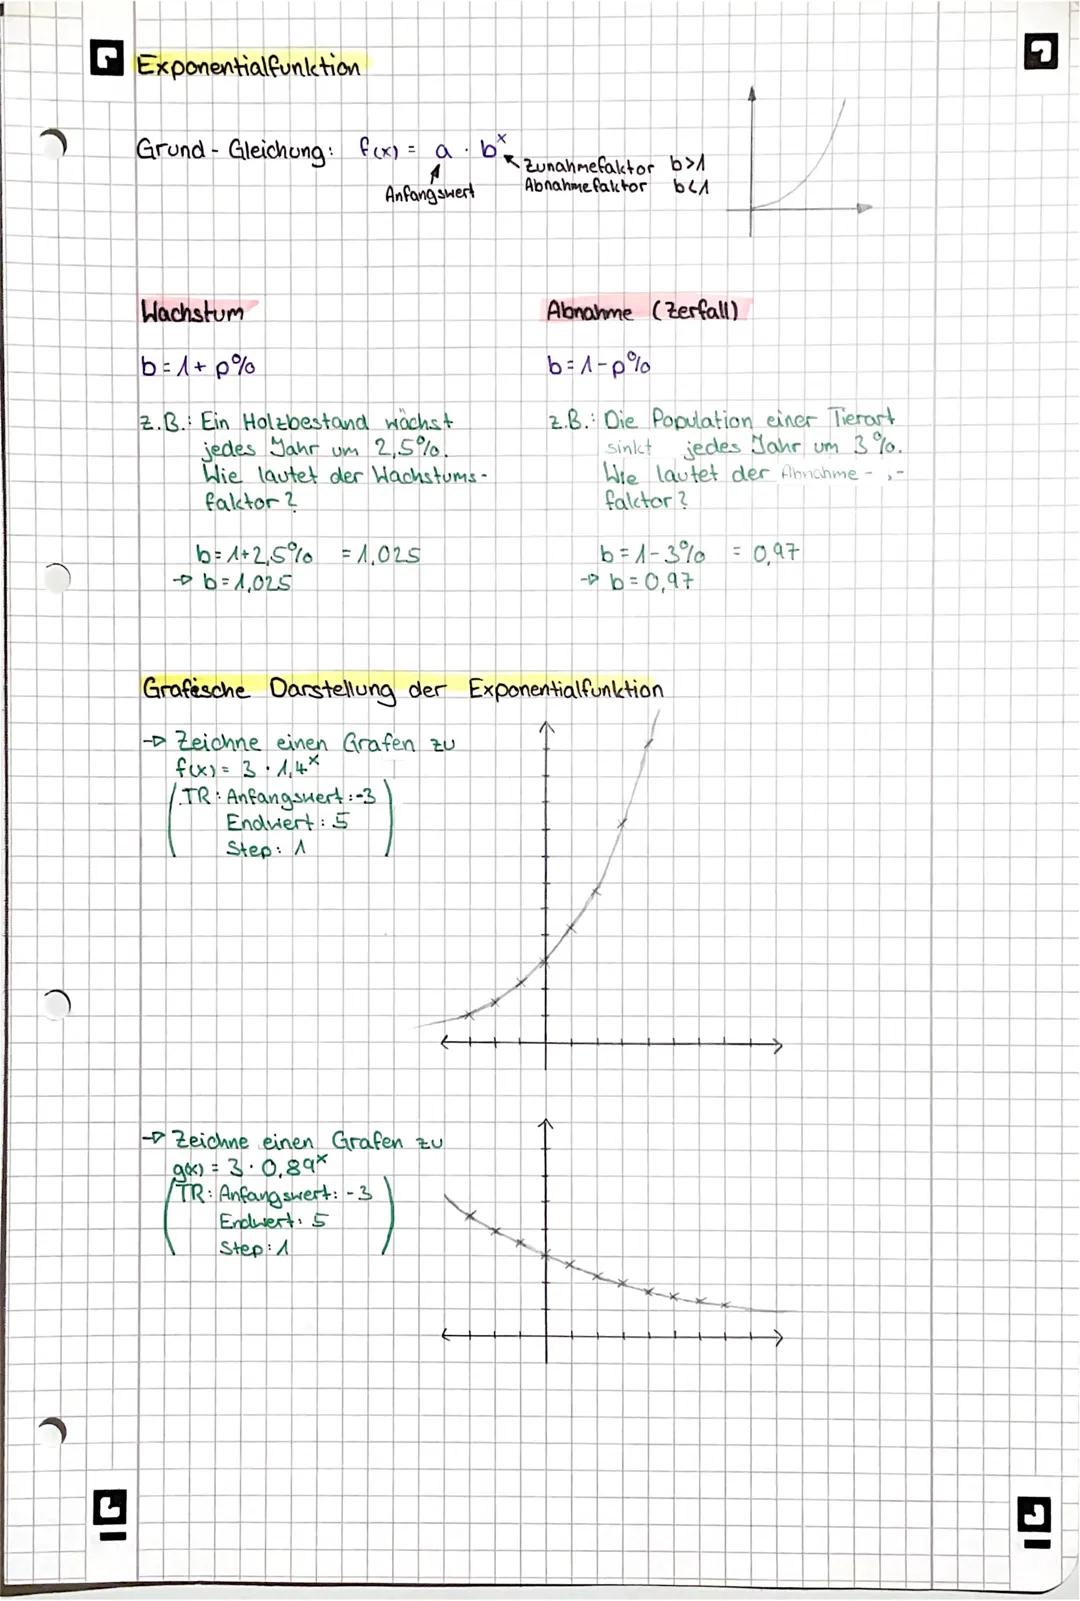 Exponentialfunktion
Grund-Gleichung: f(x) = a · bˣ
Zunahmefaktor b>1
Abnahmefaktor b<1
Anfangswert
Wachstum
b=1+p%
z.B.: Ein Holzbestand wächst
jedes Jahr um 2,5%.
Wie lautet der Wachstums-
faktor?
b=1+2,5% = 1,025
→ b=1,025
Abnahme (Zerfall)
b=1-p%
z.B.: Die Population einer Tierart
sinkt jedes Jahr um 3%.
Wie lautet der Abnahme-
faktor?
b=1-3% = 0,97
→ b=0,97
Grafische Darstellung der Exponentialfunktion
→ Zeichne einen Grafen zu
f(x) = 3 · 1,4ˣ
(TR: Anfangswert: -3
Endwert: 5
Step: 1)
→ Zeichne einen Grafen zu
g(x) = 3 · 0,89ˣ
(TR: Anfangswert: -3
Endwert: 5
Step: 1)